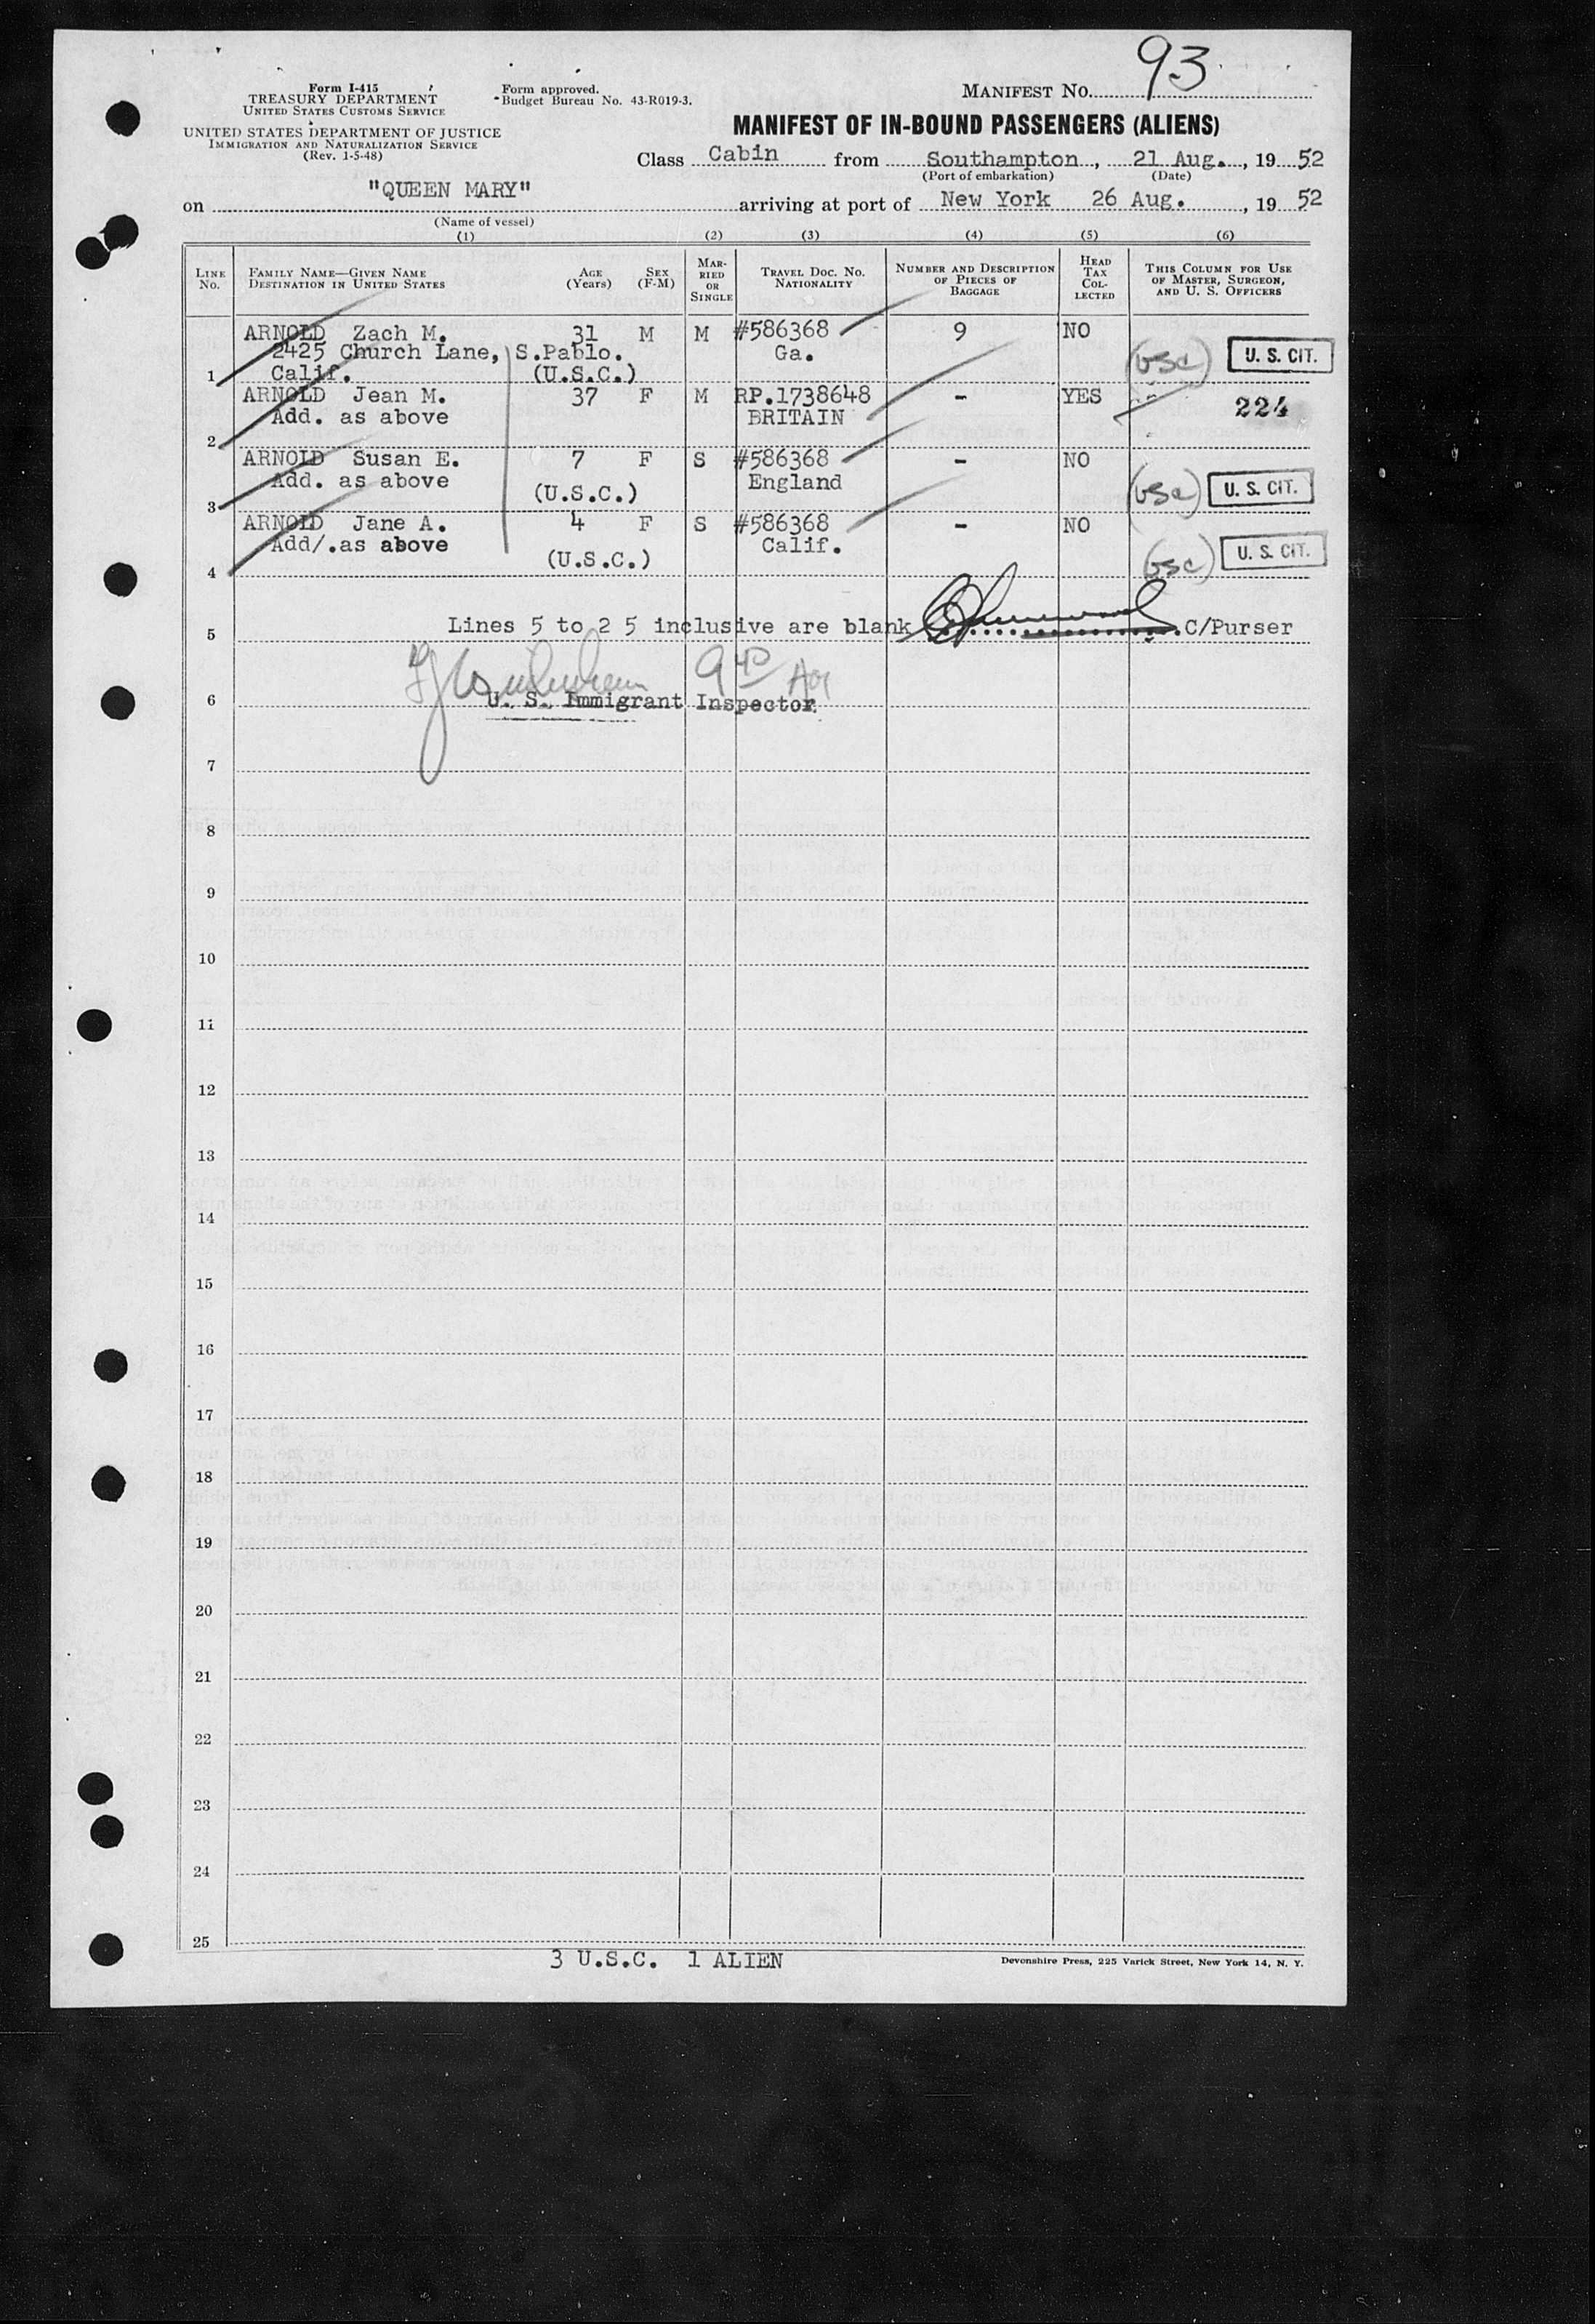 93
Form I-415
TREASURY DEPARTMENT
UNITED STATES CUSTOMS SERVICE
UNITED STATES DEPARTMENT OF JUSTICE
IMMIGRATION AND NATURALIZATION SERVICE
(Rev. 1-5-48)
Form approved.
Budget Bureau No. 43-R019-3.
MANIFEST NO.
MANIFEST OF IN-BOUND PASSENGERS (ALIENS)
Class Cabin from Southampton, 21 Aug., 1952
(Port of embarkation) (Date)
on "QUEEN MARY" arriving at port of New York 26 Aug., 1952
(Name of vessel)
(1) (2) (3) (4) (5) (6)
LINE NO.
FAMILY NAME—GIVEN NAME
DESTINATION IN UNITED STATES
AGE (Years)
SEX (F-M)
MARRIED OR SINGLE
TRAVEL DOC. NO.
NATIONALITY
NUMBER AND DESCRIPTION
OF PIECES OF
BAGGAGE
HEAD TAX COLLECTED
THIS COLUMN FOR USE
OF MASTER, SURGEON,
AND U. S. OFFICERS
ARNOLD Zach M. 31 M M #586368 9 NO
2425 Church Lane, S.Pablo. Ga. (USC) U. S. CIT.
1 Calif. (U.S.C.)
ARNOLD Jean M. 37 F M RP.1738648 - YES
Add. as above BRITAIN 224
2
ARNOLD Susan E. 7 F S #586368 - NO
Add. as above England
3 (U.S.C.) (USC) U. S. CIT.
ARNOLD Jane A. 4 F S #586368 - NO
Add/.as above Calif.
4 (U.S.C.) (USC) U. S. CIT.
5 Lines 5 to 2 5 inclusive are blank C/Purser
9 40
6 U. S. Immigrant Inspector
7
8
9
10
11
12
13
14
15
16
17
18
19
20
21
22
23
24
25
3 U.S.C. 1 ALIEN
Devonshire Press, 225 Varick Street, New York 14, N. Y.